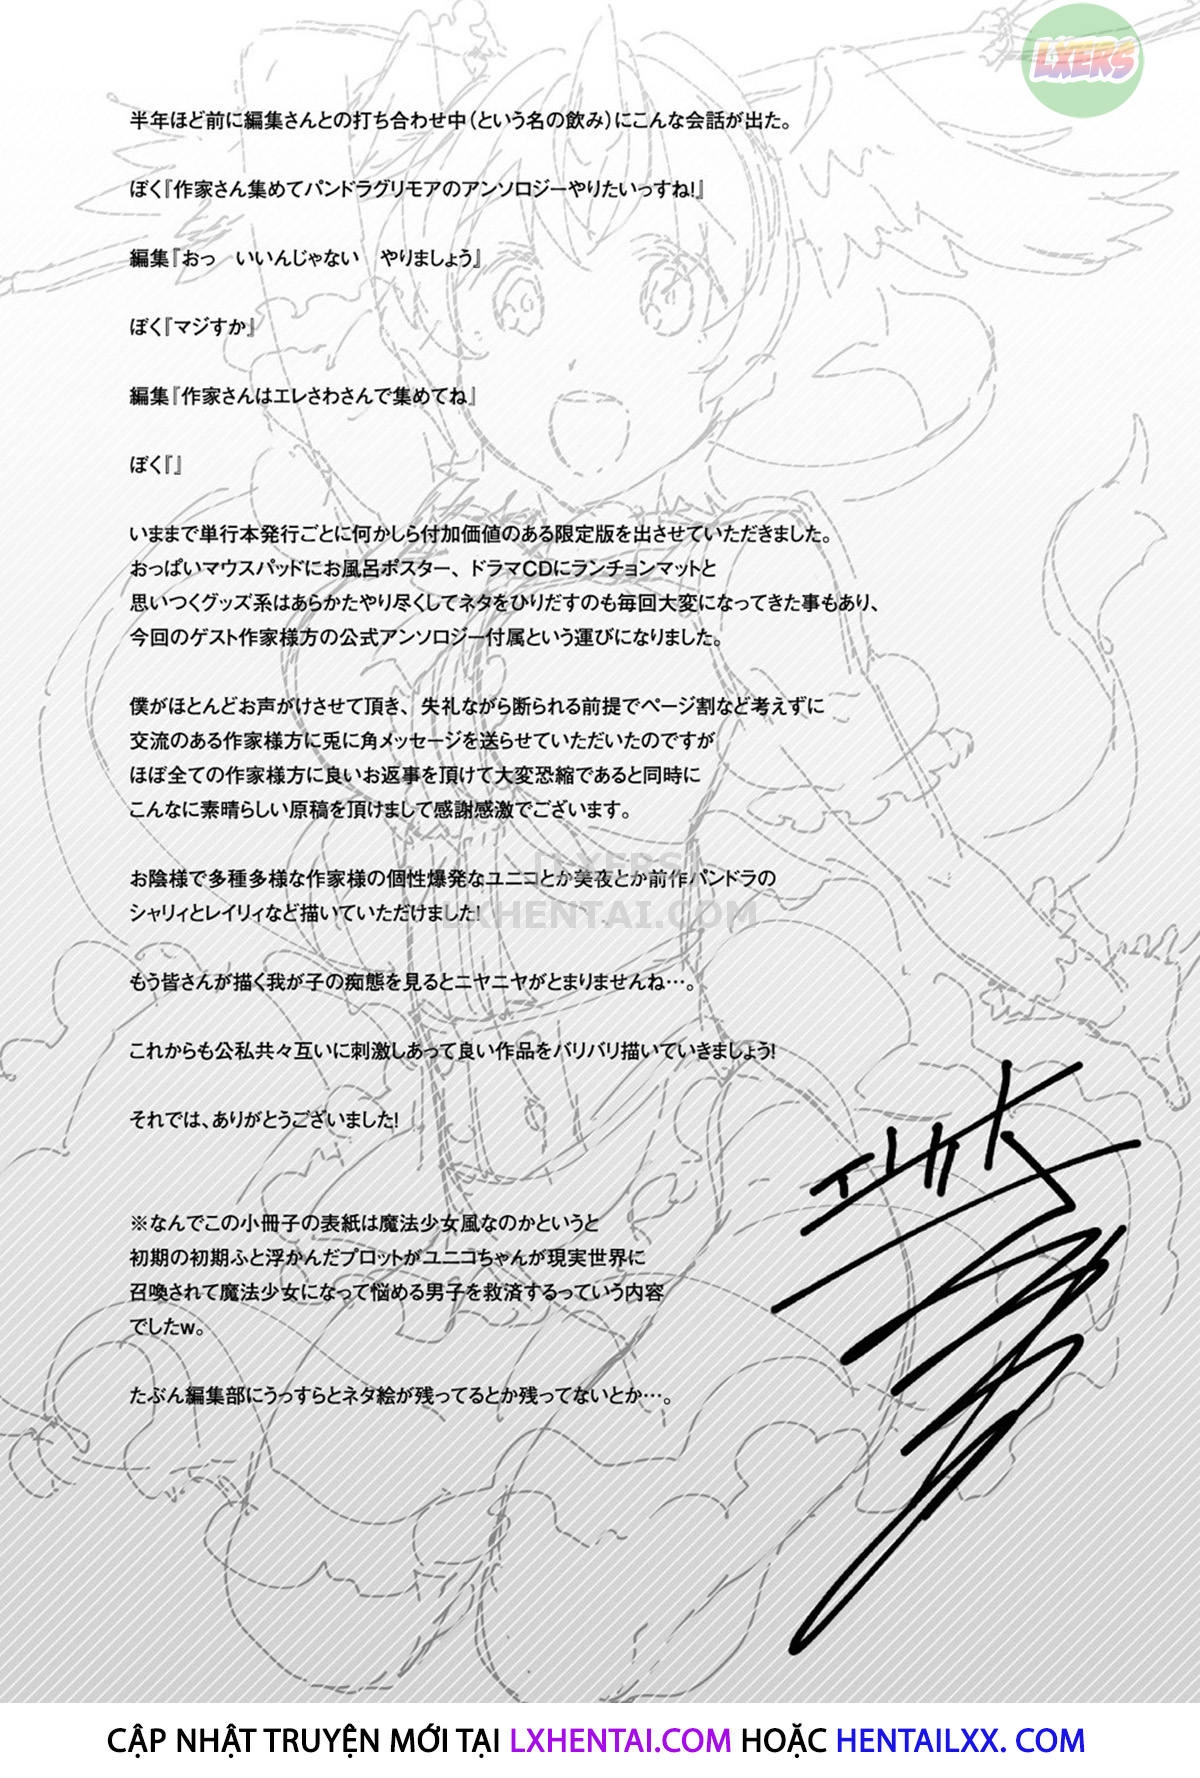 LXERS
半年ほど前に編集さんとの打ち合わせ中(という名の飲み)にこんな会話が出た。
ぼく『作家さん集めてパンドラグリモアのアンソロジーやりたいっすね!』
編集『おっ　いいんじゃない　やりましょう』
ぼく『マジすか』
編集『作家さんはエレさわさんで集めてね』
ぼく『』
いままで単行本発行ごとに何かしら付加価値のある限定版を出させていただきました。
おっぱいマウスパッドにお風呂ポスター、ドラマCDにランチョンマットと
思いつくグッズ系はあらかたやり尽くしてネタをひりだすのも毎回大変になってきた事もあり、
今回のゲスト作家様方の公式アンソロジー付属という運びになりました。
僕がほとんどお声がけさせて頂き、失礼ながら断られる前提でページ割など考えずに
交流のある作家様方に兎に角メッセージを送らせていただいたのですが
ほぼ全ての作家様方に良いお返事を頂けて大変恐縮であると同時に
こんなに素晴らしい原稿を頂けまして感謝感激でございます。
お陰様で多種多様な作家様の個性爆発なユニコとか美夜とか前作パンドラの
シャリィとレイリィなど描いていただけました!
[LXERS]
LXHENTAI.COM
もう皆さんが描く我が子の痴態を見るとニヤニヤがとまりませんね…。
これからも公私共々互いに刺激しあって良い作品をバリバリ描いていきましょう!
それでは、ありがとうございました!
※なんでこの小冊子の表紙は魔法少女風なのかというと
初期の初期ふと浮かんだプロットがユニコちゃんが現実世界に
召喚されて魔法少女になって悩める男子を救済するっていう内容
でしたw。
たぶん編集部にうっすらとネタ絵が残ってるとか残ってないとか…。
CẬP NHẬT TRUYỆN MỚI TẠI LXHENTAI.COM HOẶC HENTAILXX. COM